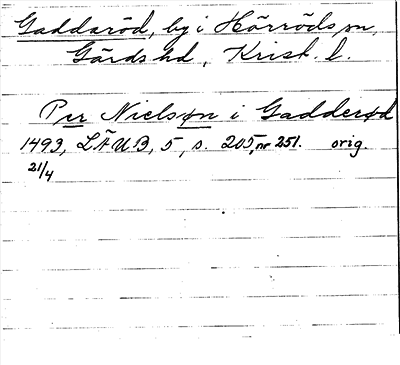 Gaddaröd, by i Hörröds sn,
Gärds hd, Krist. l.
Per Nielsøn i Gadderød
1493, LÄUB, 5, s. 205, nr 251. orig.
21/4